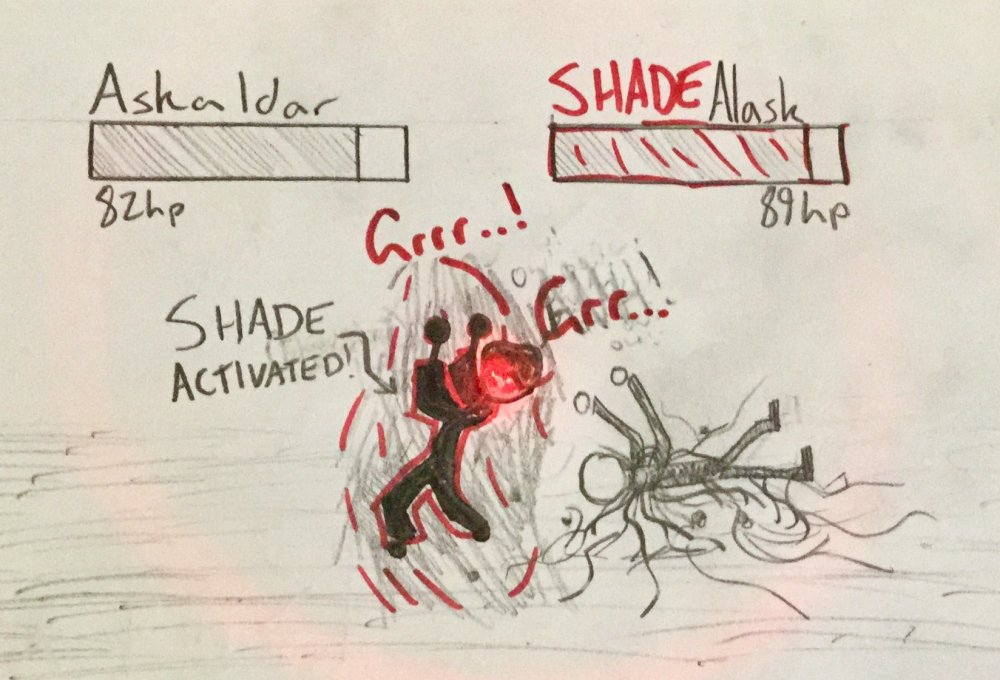 Askaldar
SHADE Alask
82hp
89hp
Grrr..!
Grr...
SHADE
ACTIVATED!